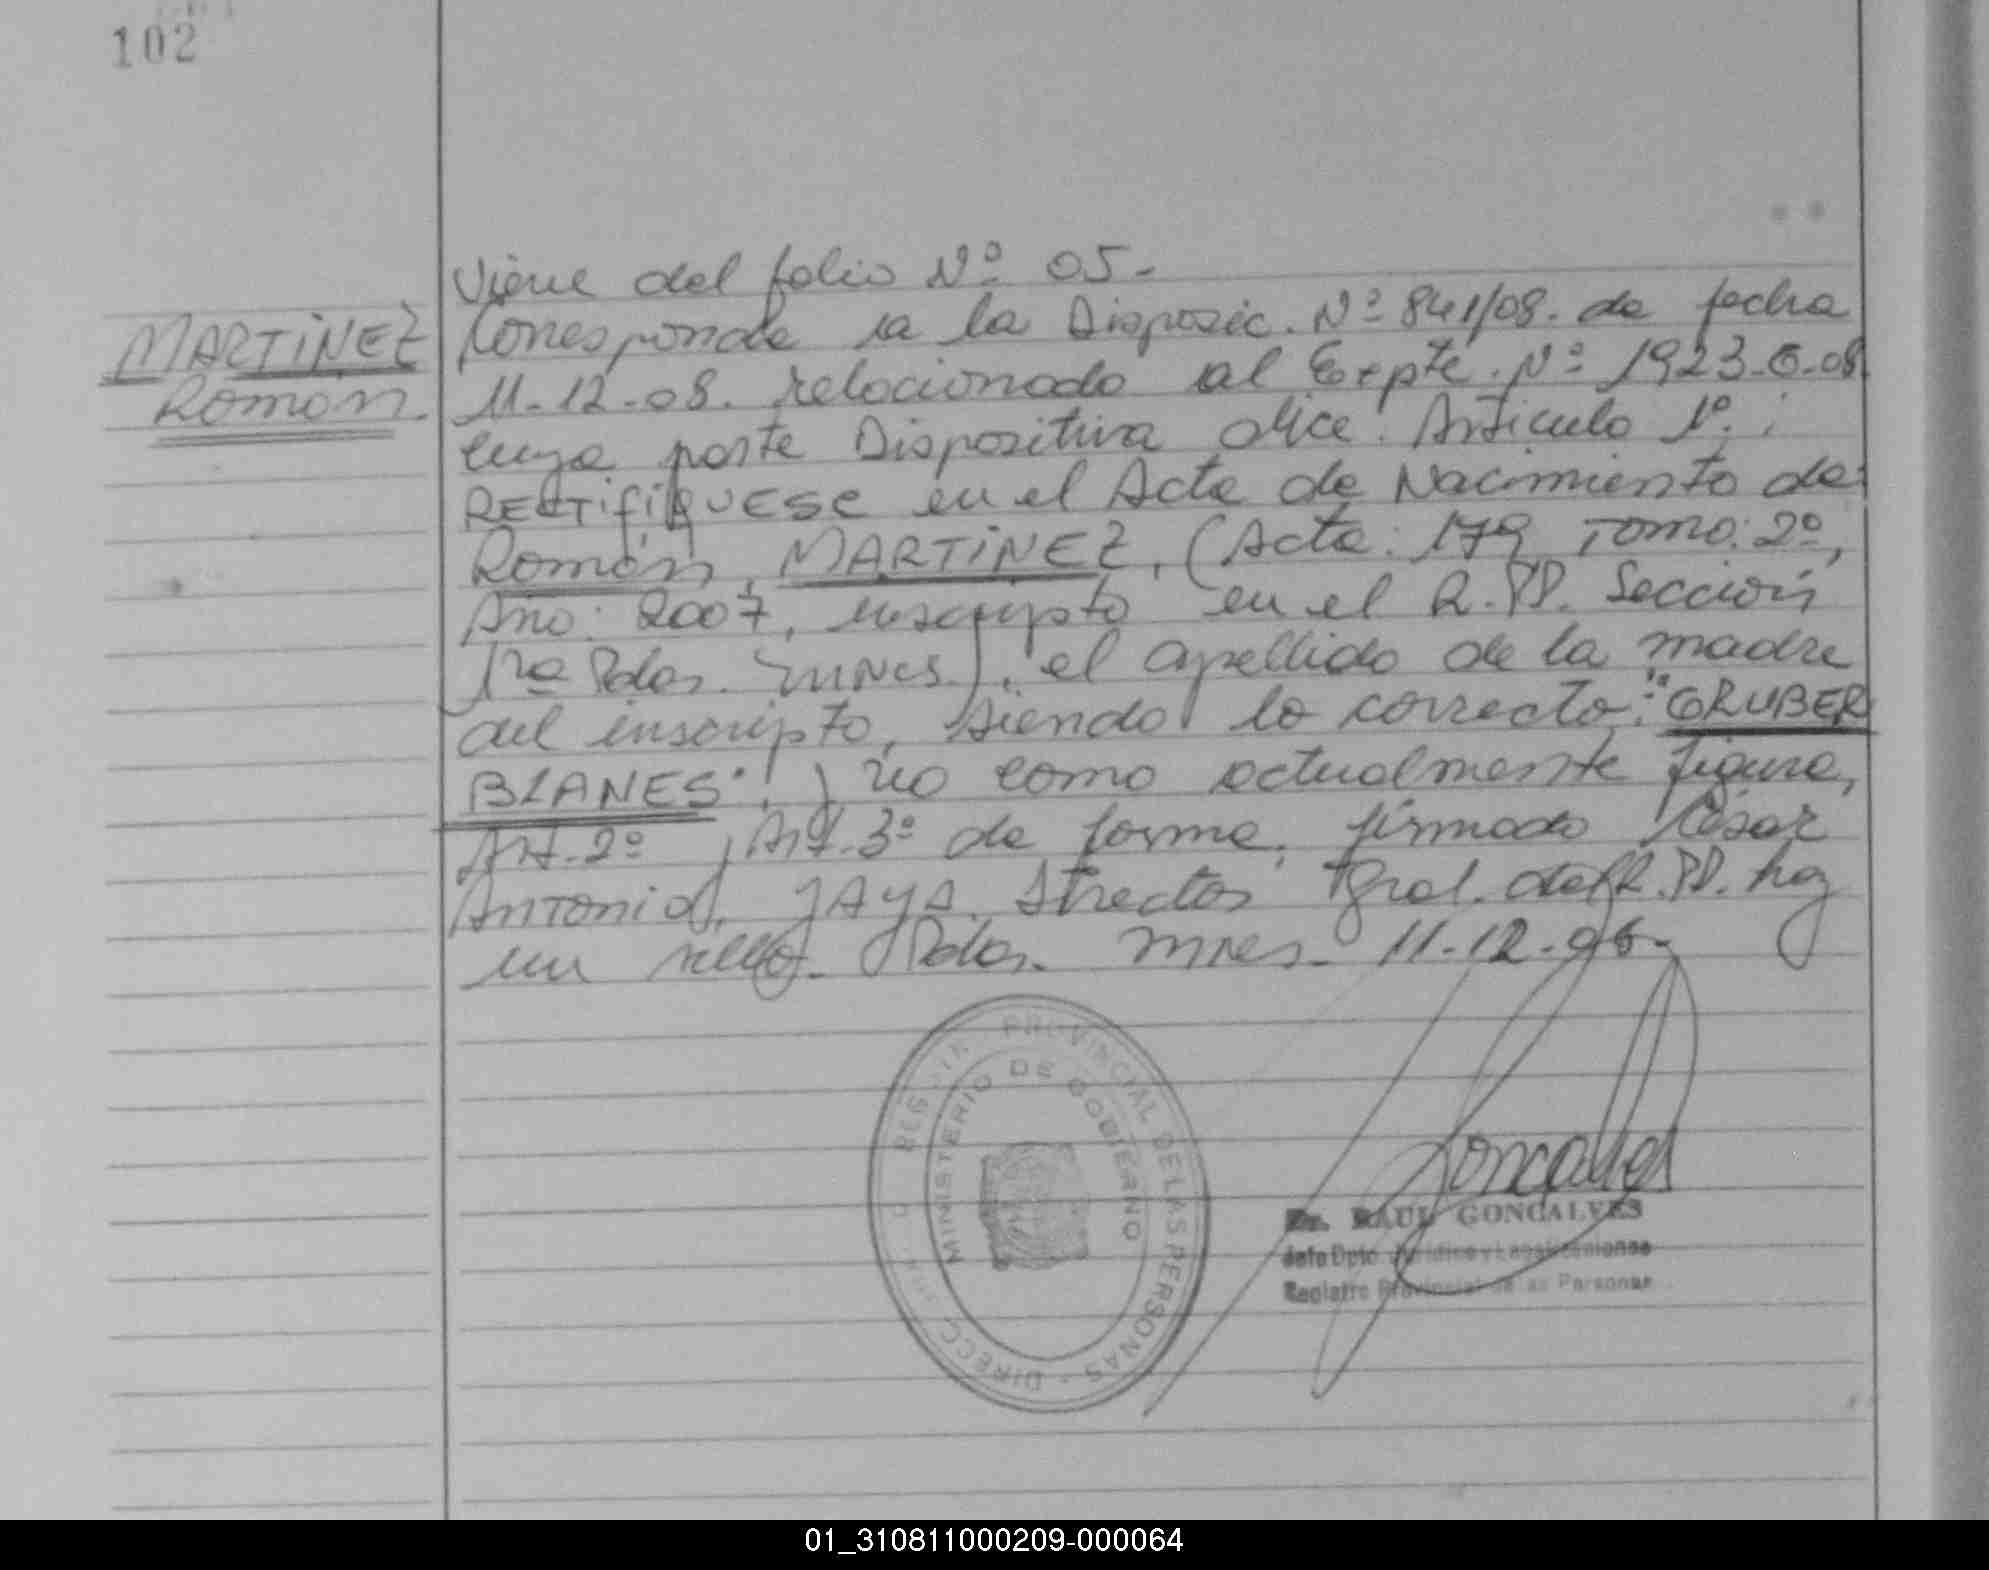 102
Viene del folio Nº 05-
MARTINEZ
Román.
Corresponde a la Disposic. Nº 841/08. de fecha
11-12-08. relacionado al Expte. Nº 1923-G-08
cuya parte Dispositiva dice. Articulo 1º:
RECTIFIQUESE en el Acta de Nacimiento de:
Román, MARTINEZ, (Acta: 179 Tomo: 2º,
Año: 2007, inscripto en el R.PP. Sección
1ra Pdas. Mnes), el apellido de la madre
del inscripto, siendo lo correcto: "GRUBER
BLANES" y no como actualmente figura,
Art. 2º y Art. 3º de forma, firmado César
Antonio, JAYA, Director Gral. del R.PP. hay
un sello. Pdas. Mnes-11-12-
REGISTRO PROVINCIAL DE LAS PERSONAS - DIRECC
MINISTERIO DE GOBIERNO
Goncalves
Dr. RAUL GONCALVES
Jefe Dpto. Jurídico y Legalizaciones
Registro Provincial de las Personas
01_310811000209-000064